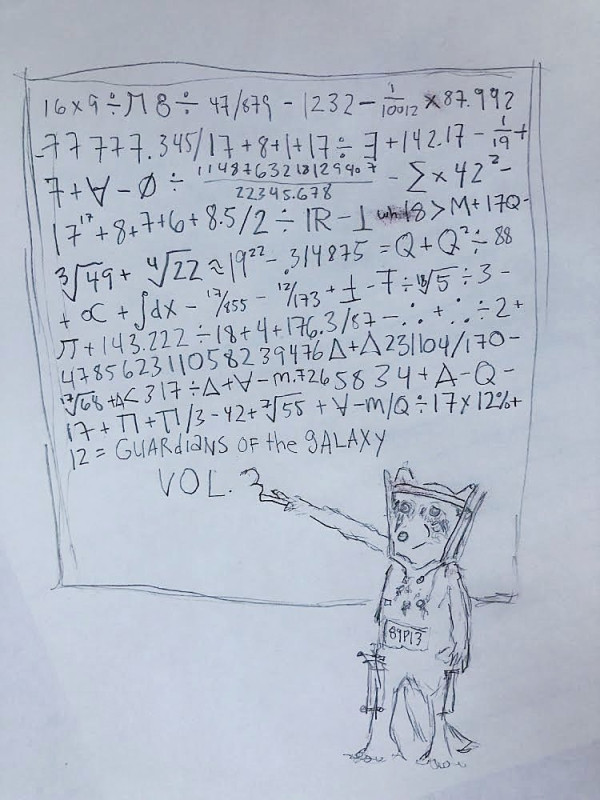 16 x 9 ÷ π 8 ÷ 47/879 - 1232 - 1/10012 x 87.992
-77777.345/17 + 8 + 1 + 17 ÷ ∃ + 142.17 - 1/19 +
7 + ∀ - Ø ÷ 114876321812940 7/22345.678 - Σ x 42² -
17¹⁷ + 8 + 7 + 6 + 8.5/2 ÷ ℝ - ⊥ 8 > M + 17Q -
³√49 + ⁴√22 ≈ 19²² - .314875 = Q + Q² ÷ 88
+ ∝ + ∫dx - 17/855 - 12/173 + 1 - 7 ÷ √5 ÷ 3 -
π + 143.222 ÷ 18 + 4 + 176.3/87 - ∴ + ∴ ÷ 2 +
47856231105823 9476 Δ + Δ 231104/170 -
¹⁷√68 + < 317 ÷ Δ + ∀ - m.726 5834 + A - Q -
17 + Π + Π/3 - 42 + ⁷√55 + ∀ - m/Q ÷ 17 x 12% +
12 = GUARdiANS OF the gALAXY
VOL. 3
89P13